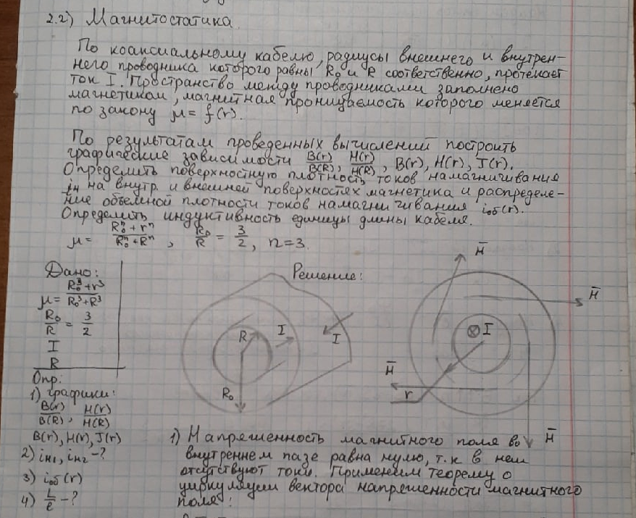 2.2) Магнитостатика.
По коаксиальному кабелю, радиусы внешнего и внутрен-
него проводника которого равны R₀ и R соответственно, протекает
ток I. Пространство между проводниками заполнено
магнетиком, магнитная проницаемость которого меняется
по закону μ = f(r).
По результатам проведенных вычислений построить
графические зависимости B(r)/B(R), H(r)/H(R), B(r), H(r), J(r).
Определить поверхностную плотность токов намагничивания
iн на внутр. и внешней поверхностях магнетика и распределе-
ние объемной плотности токов намагничивания iоб(r).
Определить индуктивность единицы длины кабеля.
μ = (R₀ⁿ + rⁿ)/(R₀ⁿ + Rⁿ), R₀/R = 3/2, n = 3.
Дано:
μ = (R₀³ + r³)/(R₀³ + R³)
R₀/R = 3/2
I
R
Опр:
1) графики:
B(r)/B(R), H(r)/H(R)
B(r), H(r), J(r)
2) iн₁, iн₂ - ?
3) iоб(r)
4) L/ℓ - ?
Решение:
R
I
I
R₀
H̄
H̄
I
H̄
r
H̄
1) Напряженность магнитного поля во
внутреннем пазе равна нулю, т.к в нем
отсутствуют токи. Применим теорему о
циркуляции вектора напряженности магнитного
поля: